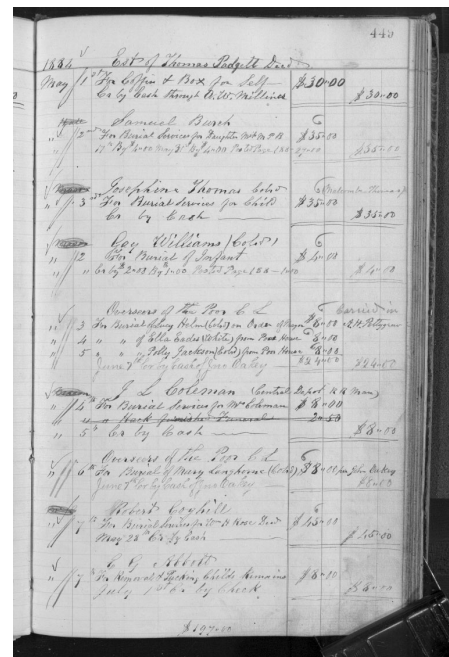 449
1884 Est of Thomas Padgett Decd
May 1st For Coffin & Box for Self $30-00
Cr by Cash through A. W. Milliner $30-00
Samuel Burch
" 2nd For Burial Services for Daughter $35-00
$35-00
Josephine Thomas Cold
" 3rd For Burial Services for Child $35-00
Cr by Cash $35-00
Guy Williams (Cold)
" 2 For Burial of Infant $4-00
" Cr by $4-00
Overseers of the Poor C L Carried in
" 3 For Burial of Lucy (Cold) on Order of $8-00
" 4 " " of Ella Eades (White) from Poor House $8-00
" 5 " " Polly Jackson (Cold) from Poor House $8-00
June 7th Cr by Cash of Jno Oakey $24-00 $24-00
J L Coleman (Central Depot R R Man)
" 4th For Burial Services for Mr Coleman $8-00
" " Hack furnished Funeral 2-50
" 5th Cr by Cash $8-00
Overseers of the Poor C L
" 6th For Burial of Mary Langhorne (Cold) $8-00 per John Oakey
June 7th Cr by Cash of Jno Oakey $8-00
Robert Coghill
" 7th For Burial Services for Wm R Rose Decd $45-00
May 23rd Cr By Cash $45-00
C G Abbott
" 7th For Removal & Packing Childs Remains $8-00
July 1st Cr by Check $8-00
$197-00